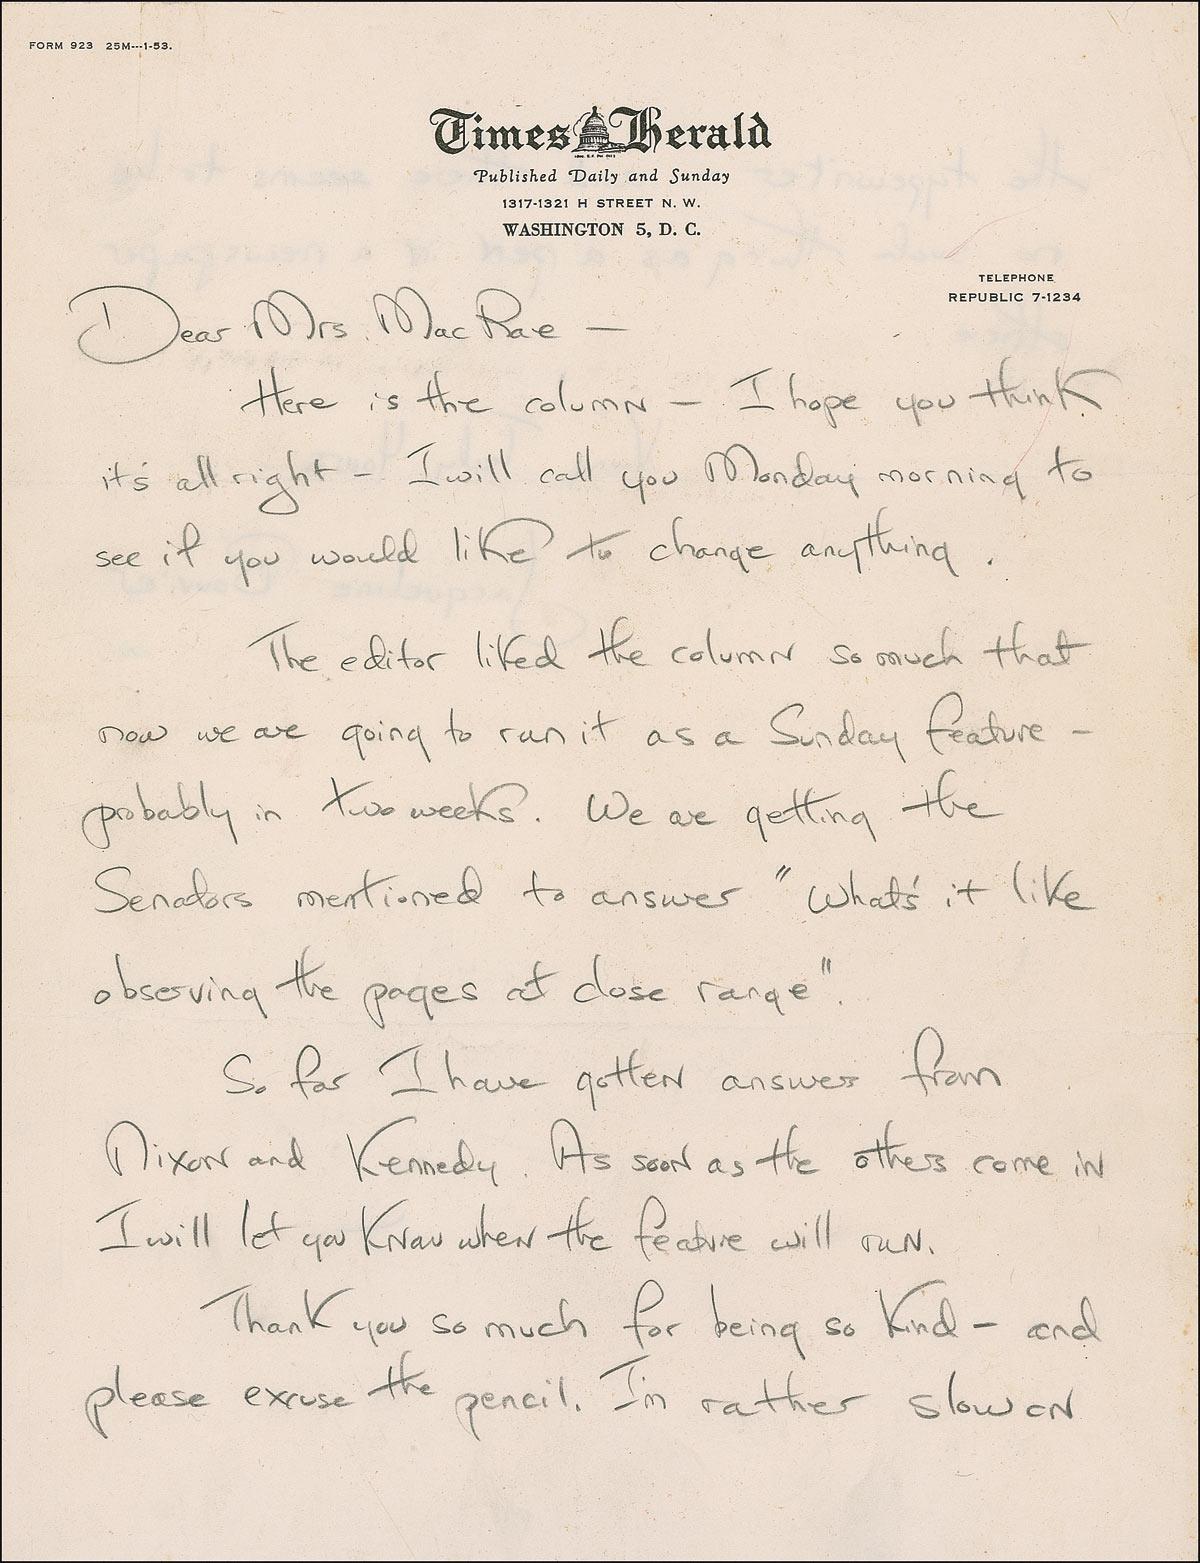 FORM 923 25M---1-53.
Times Herald
Published Daily and Sunday
1317-1321 H STREET N. W.
WASHINGTON 5, D. C.
TELEPHONE
REPUBLIC 7-1234
Dear Mrs. Mac Rae —
Here is the column — I hope you think
it's all right — I will call you Monday morning to
see if you would like to change anything.
The editor liked the column so much that
now we are going to run it as a Sunday feature -
probably in two weeks. We are getting the
Senators mentioned to answer "What's it like
observing the pages at close range".
So far I have gotten answers from
Nixon and Kennedy. As soon as the others come in
I will let you know when the feature will run.
Thank you so much for being so kind — and
please excuse the pencil. I'm rather slow on